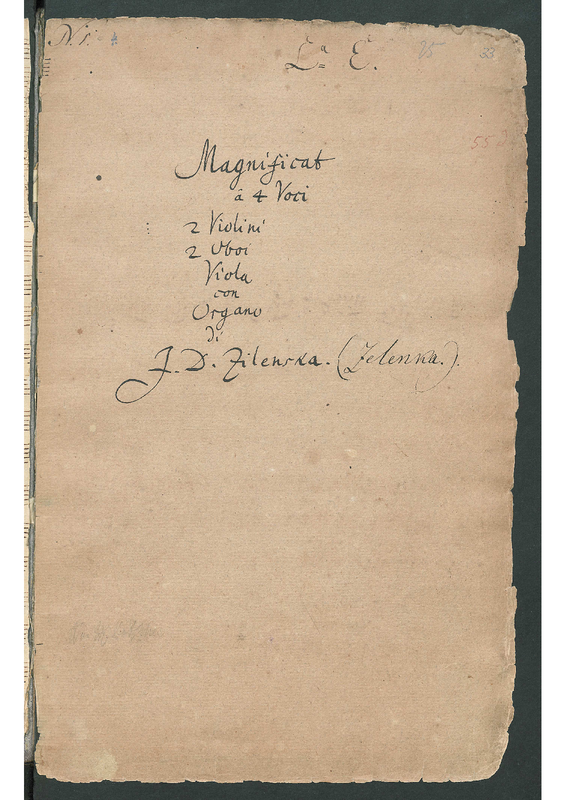 N. 1.
La E.
25
33
55
Magnificat
â 4 Voci
2 Violini
2 Oboi
Viola
con
Organo
di
J. D. Zilenska. (Zelenka.).